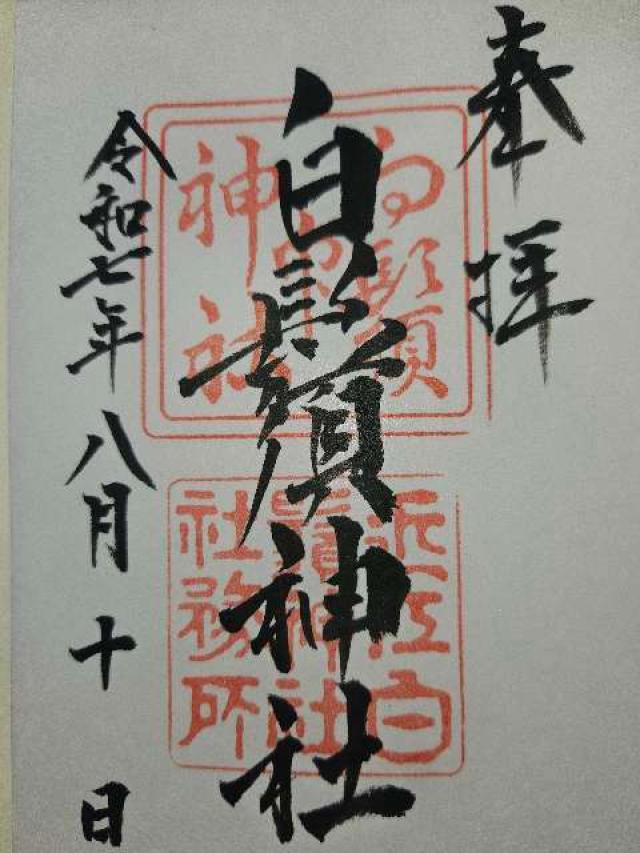 奉拝
白鬚神社
令和七年八月十日
近江白
鬚神社
社務所